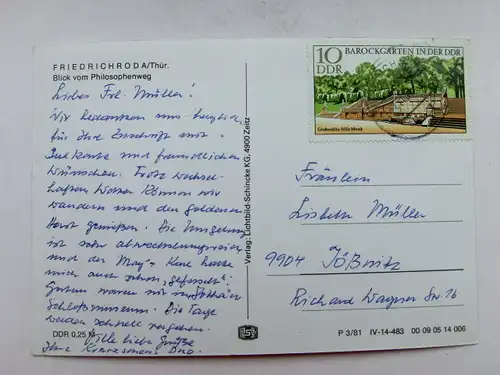 FRIEDRICHRODA/Thür.
Blick vom Philosophenweg
Liebes Frl. Müller!
Wir bedanken uns herzlich
für Ihre Zuschrift mit
Karte und freundlichen
Wünschen. Trotz wechsel-
haftem Wetter können wir
wandern und den goldenen
Herbst genießen. Die Umgebung
ist sehr abwechslungsreich
und der
mich auch schon „
Gestern waren wir
Schloßmuseum. Die Tage
werden schnell vergehen.
Viele liebe Grüße
Ihre
DDR 0,25 M
Verlag: Lichtbild-Schincke KG, 4900 Zeitz
10
DDR
BAROCKGÄRTEN IN DER DDR
Großsedlitz, Stille Musik
Fräulein
Lisbeth Müller
9904 Jößnitz
Richard Wagner Str. 16
P 3/81 IV-14-483 00 09 05 14 006